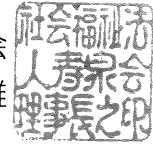 社会福祉法
人寿泉会
理事長之印